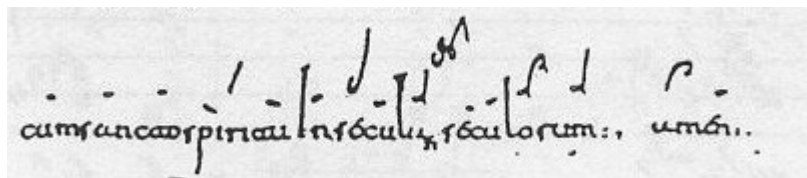 cumsanctospiritu Insecula seculorum:, amen:.